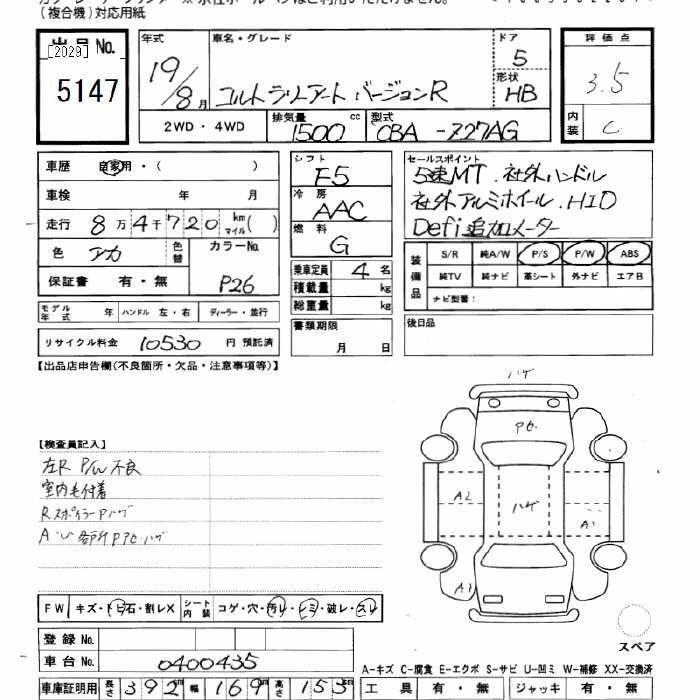 (複合機)対応用紙
出品No. [2029] 5147
年式 19/8月
車名・グレード コルト ラリーアート バージョンR
ドア 5
形状 HB
評価点 3.5
内装 C
2WD・4WD 排気量 1500 cc 型式 CBA-Z27AG
車歴 自家用・( )
車検 年 月
走行 8万4千720 km マイル( )
色 アカ 色替 カラーNo. P26
保証書 有・無
モデル年式 年 ハンドル 左・右 ディーラー・並行
リサイクル料金 10530 円 預託済
シフト F5
冷房 AAC
燃料 G
乗車定員 4 名
積載量 kg
総重量 kg
書類期限 月 日
セールスポイント
5速MT.社外ハンドル
社外アルミホイール.HID
Defi追加メーター
装備品 S/R 純A/W P/S P/W ABS
純TV 純ナビ 革シート 外ナビ エアB
ナビ型番:
後日品
【出品店申告欄(不良箇所・欠品・注意事項等)】
【検査員記入】
左R P/W不良
室内毛付着
Rスポイラー Pハゲ
A・U各所 P々レ・ハゲ
ハゲ
P6.
A2 ハゲ A1
A1
スペア
FW キズ・トビ石・割レX シート内装 コゲ・穴・汚レ・シミ・破レ・スレ
登録No.
車台No. 0400435
車庫証明用 長さ 392cm 幅 169cm 高さ 153cm
A-キズ C-腐食 E-エクボ S-サビ U-凹ミ W-補修 XX-交換済
工具 有・無 ジャッキ 有・無